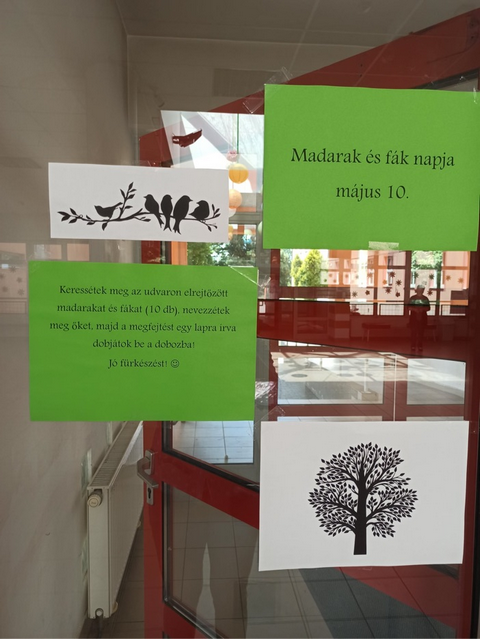 Madarak és fák napja
május 10.
Keressétek meg az udvaron elrejtőzött
madarakat és fákat (10 db), nevezzétek
meg őket, majd a megfejtést egy lapra írva
dobjátok be a dobozba!
Jó fürkészést! ☺